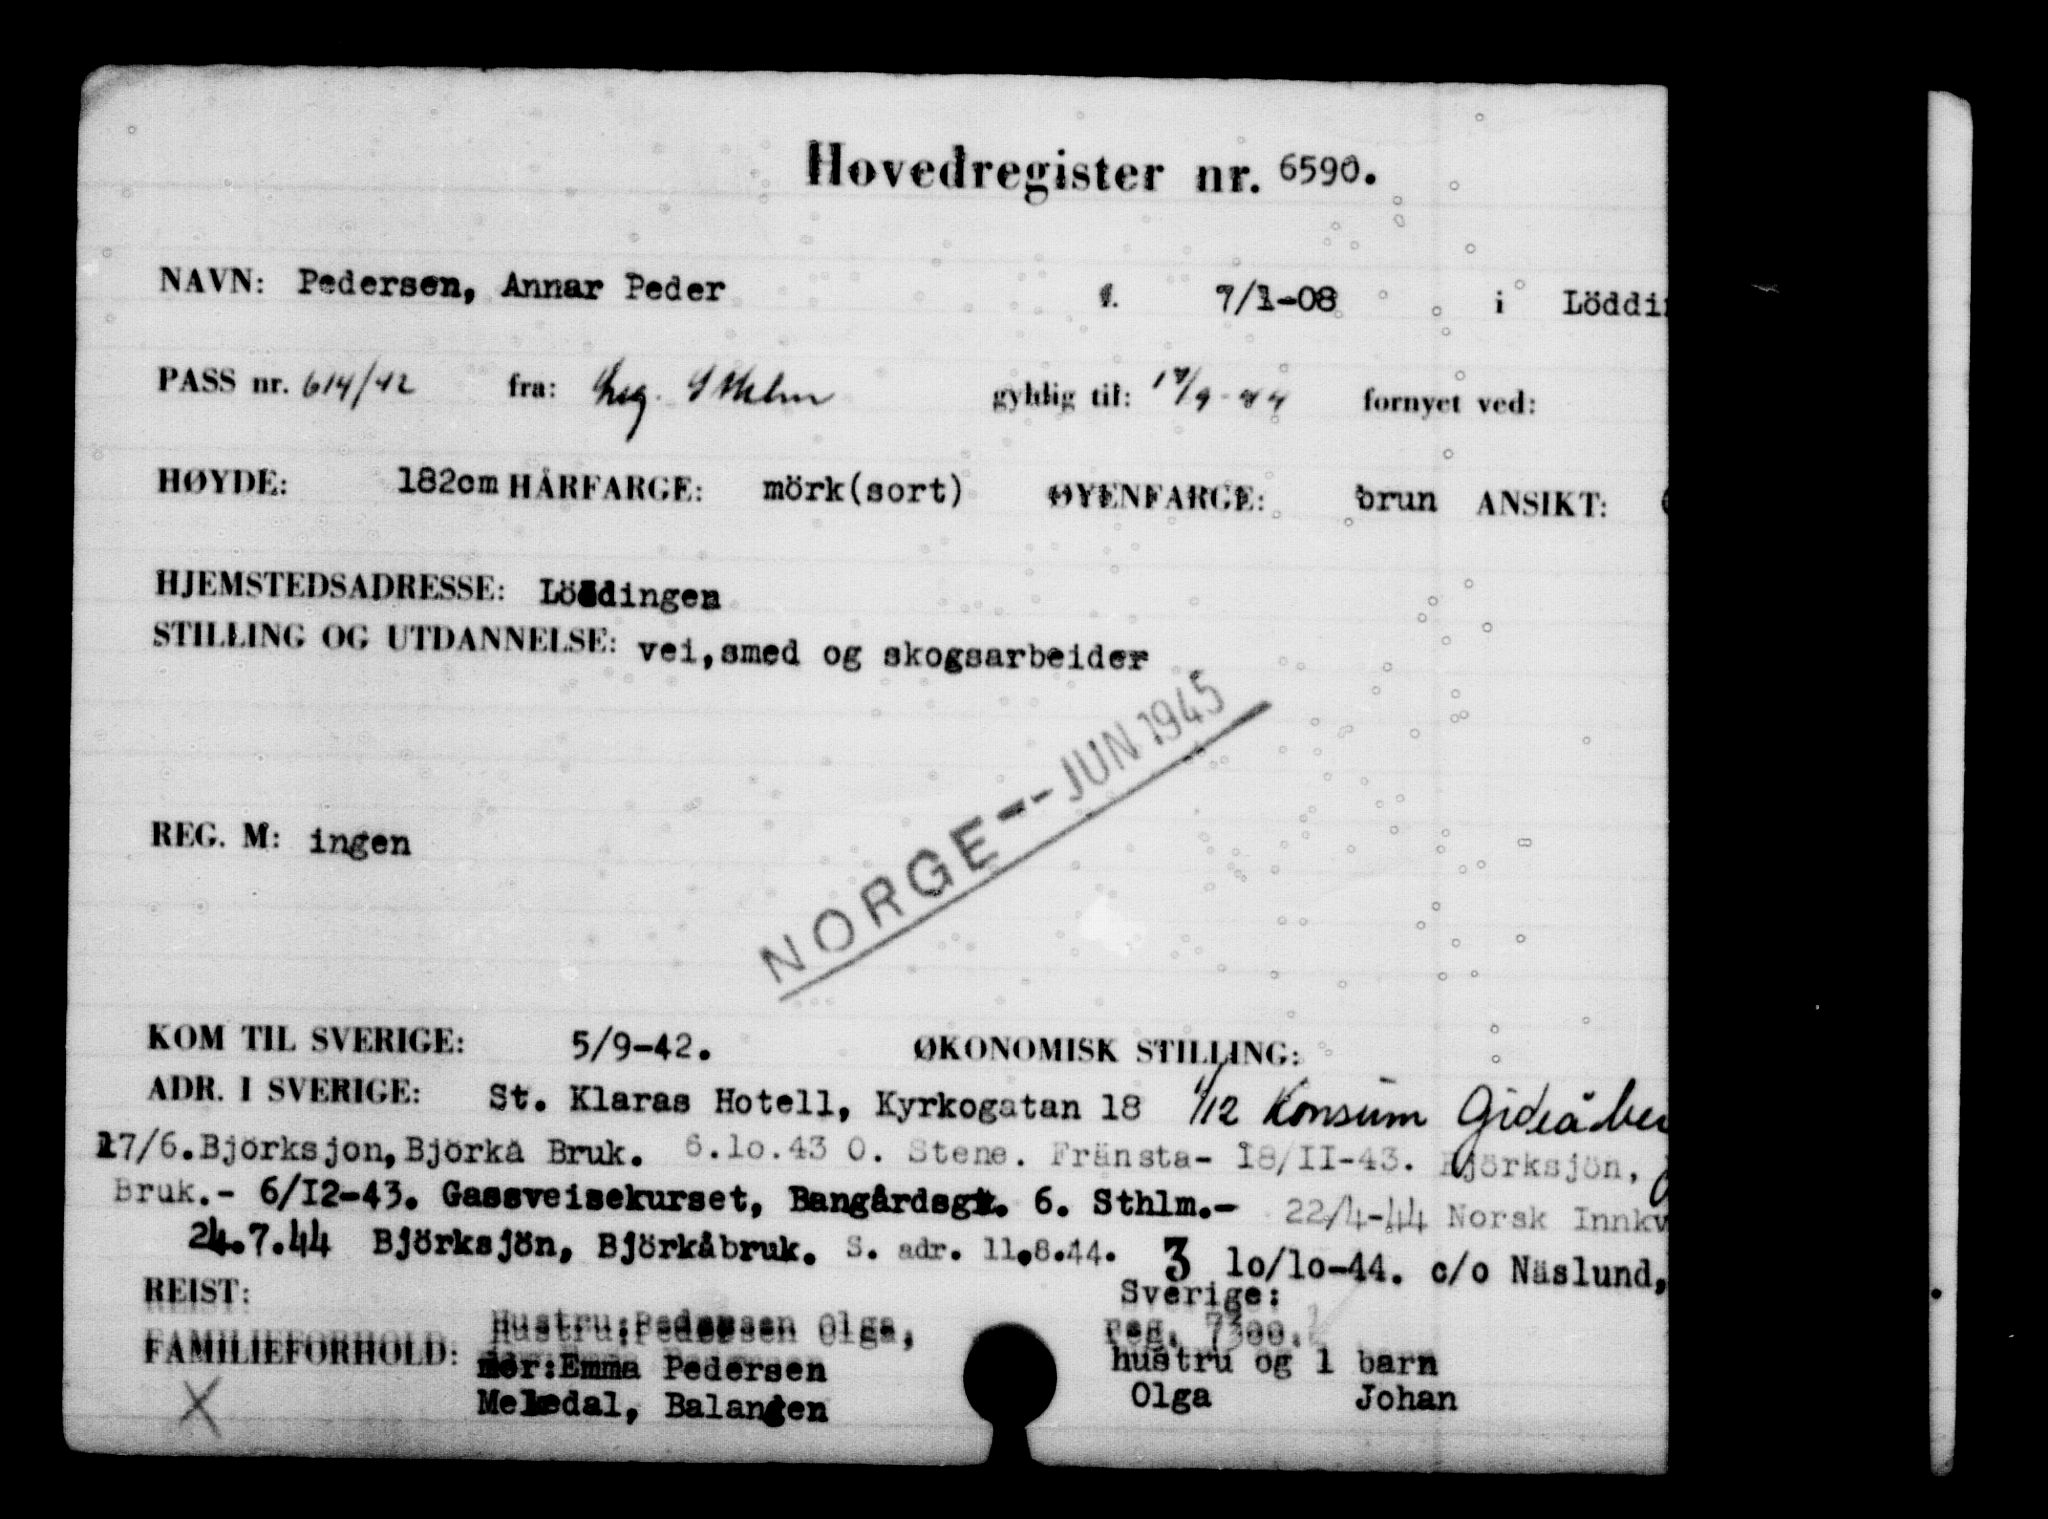 Hovedregister nr. 6590.
NAVN: Pedersen, Annar Peder f. 7/1-08 i Löddi
PASS nr. 614/42 fra: Leg. Sthlm gyldig til: 17/9-44 fornyet ved:
HØYDE: 182cm HÅRFARGE: mörk(sort) ØYENFARGE: brun ANSIKT:
HJEMSTEDSADRESSE: Löddingen
STILLING OG UTDANNELSE: vei,smed og skogsarbeider
NORGE -- JUN 1945
REG. M: ingen
KOM TIL SVERIGE: 5/9-42. ØKONOMISK STILLING:
ADR. I SVERIGE: St. Klaras Hotell, Kyrkogatan 18 1/12 Konsum Gideåber
17/6.Björksjon,Björkå Bruk. 6.lo.43 O. Stene. Fränsta- 18/II-43. Björksjön,
Bruk.- 6/I2-43. Gassveisekurset, Bangårdsgt. 6. Sthlm.- 22/4-44 Norsk Innkv
24.7.44 Björksjön, Björkåbruk. S. adr. 11.8.44. 3 lo/lo-44. c/o Näslund,
REIST: Sverige:
FAMILIEFORHOLD: Hustru:Pedersen Olga, reg. 7300.
mor:Emma Pedersen hustru og 1 barn
Meledal, Balangen Olga Johan
X